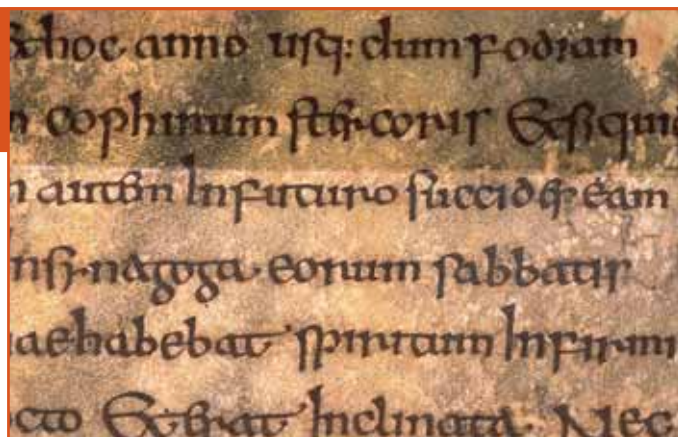 Et hoc anno usq: dum fodiam
n cophinum stercoris Et si quid
n autem In futuro succides eam
nsinagoga eorum sabbatis
ae habebat spiritum Infirmi
cto Et erat Inclinata Nec